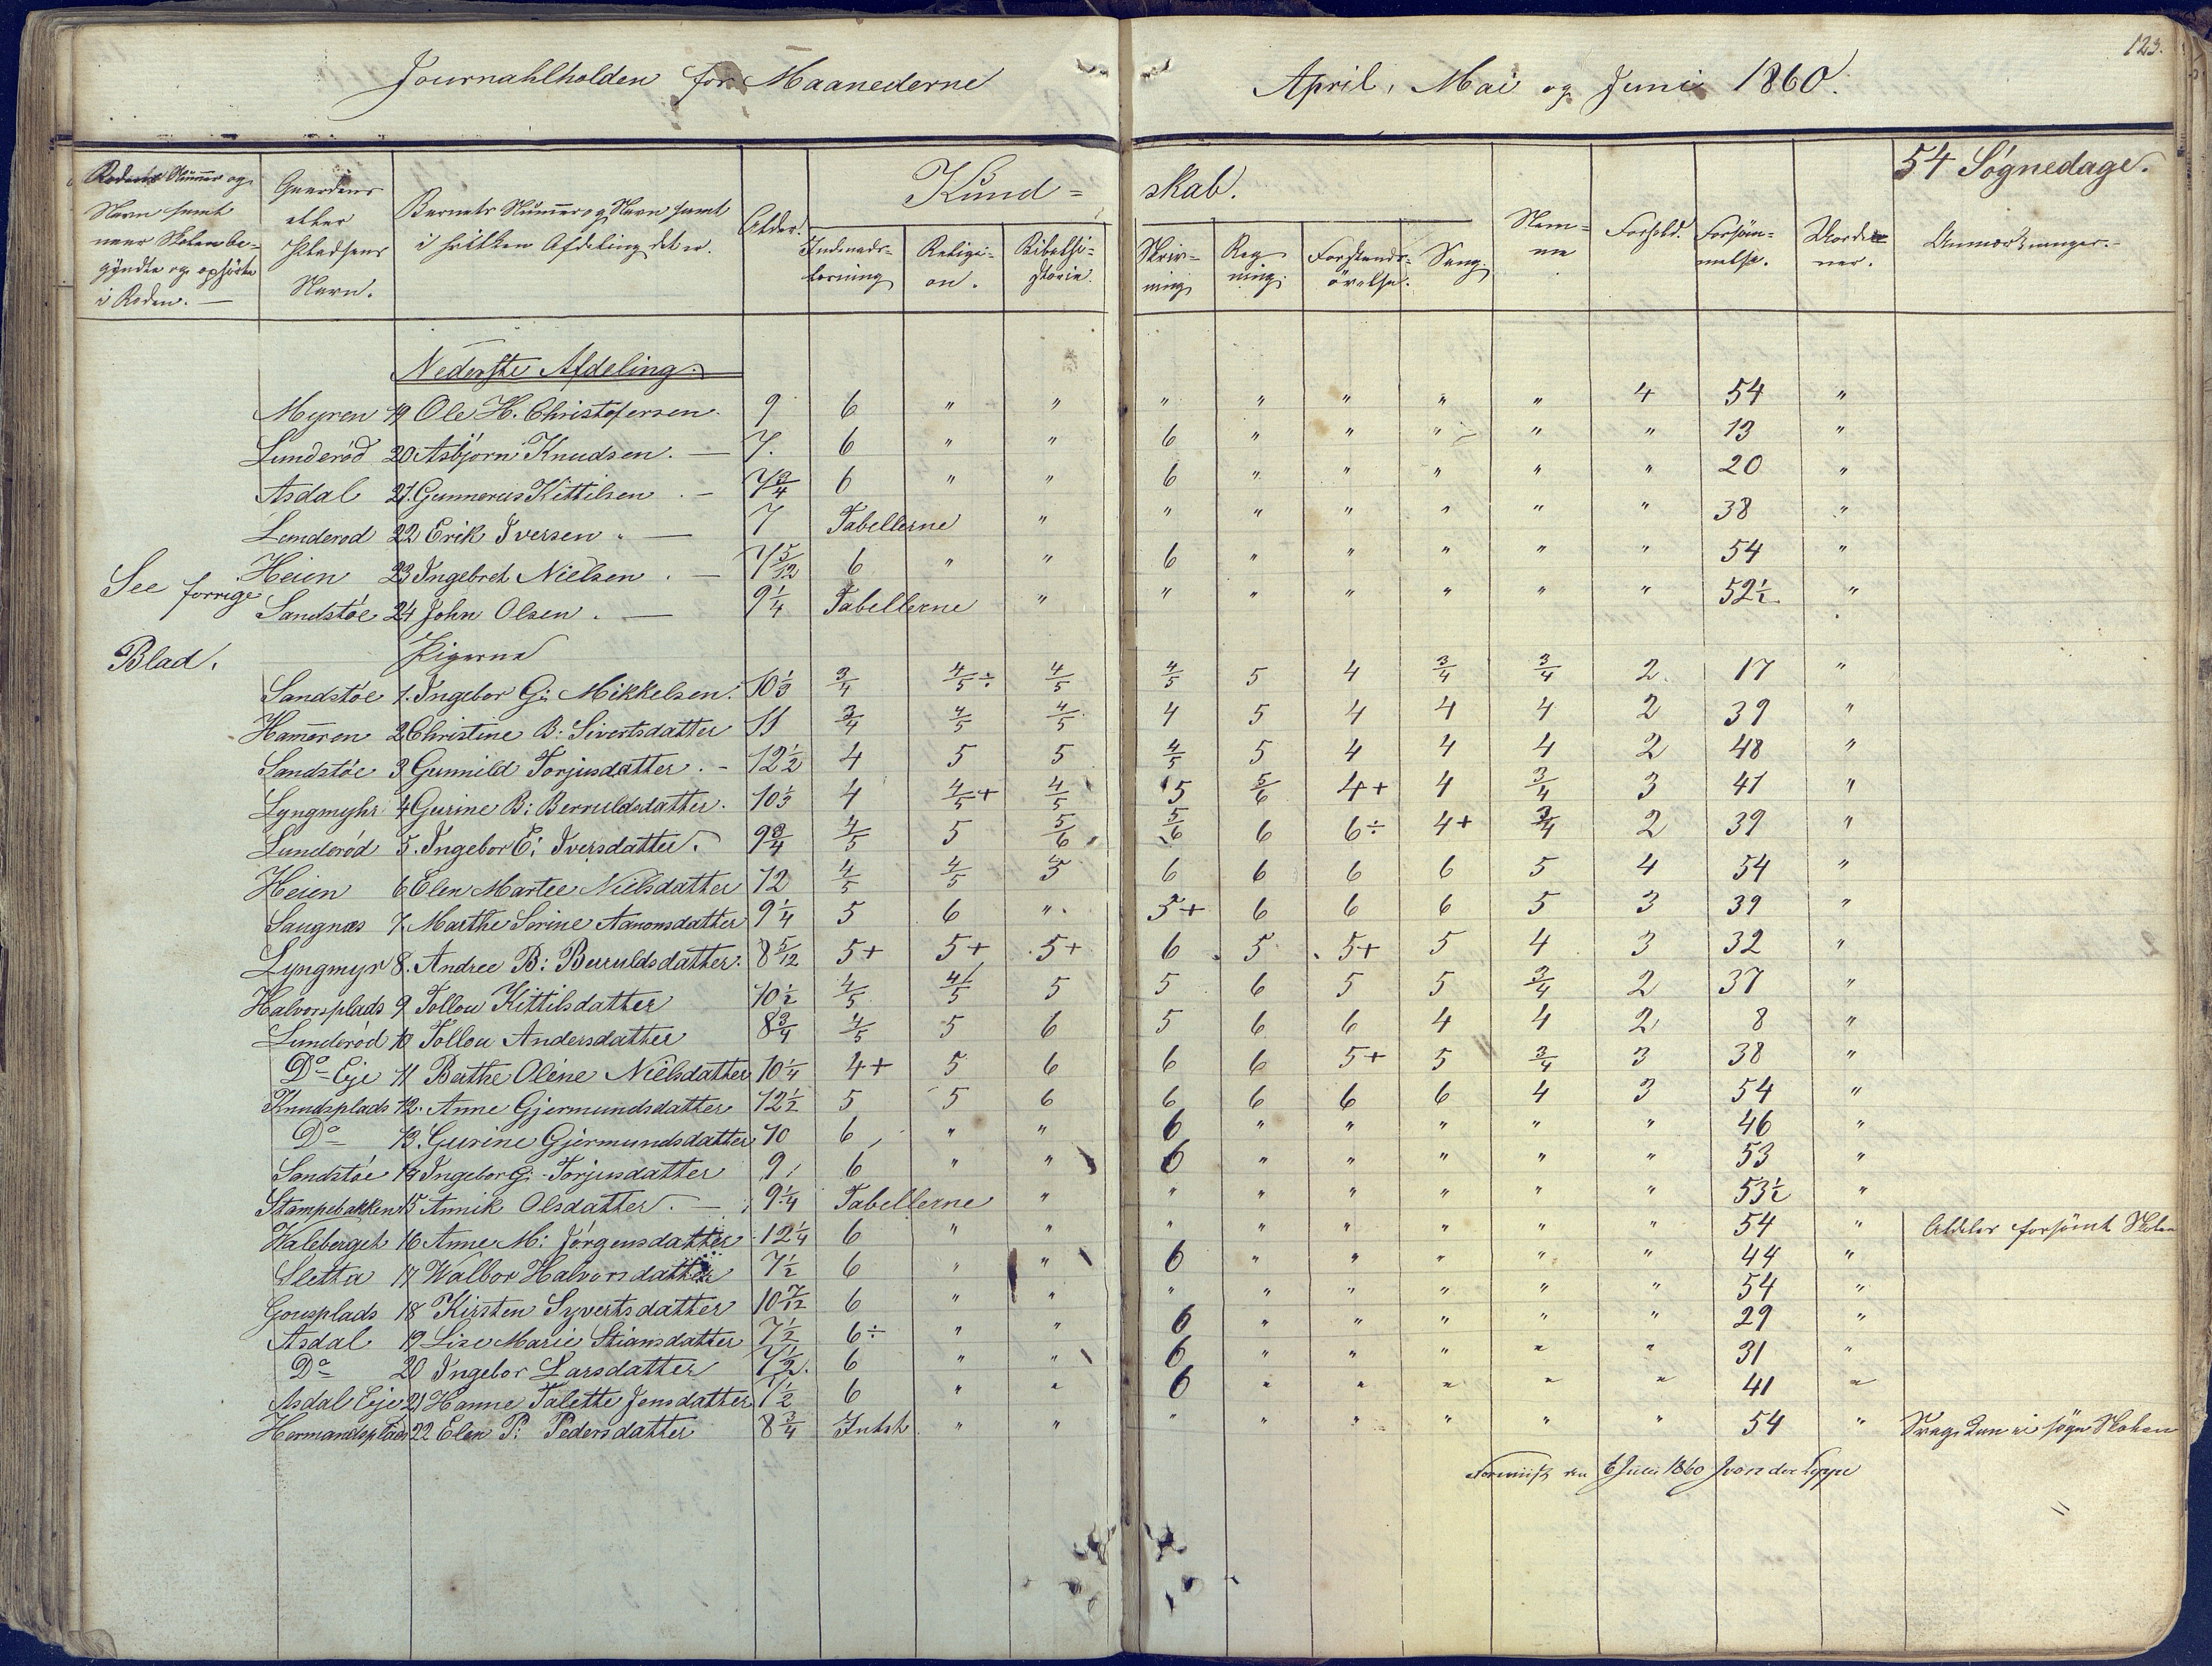 Journahlholden for Maanederne April, Mai og Juni 1860.
123.
54 Søgnedage.
Rodens Nummer og Navn samt naar Skolen be-
gyndte og ophørte i Roden. —
Gaardens eller Pladsens Navn.
Barnets Nummer og Navn samt i hvilken Afdeling det er.
Alder.
Kund-
skab.
Indenads-
læsning
Religi-
on.
Bibelhi-
storie.
Skriv-
ning
Reg
ning.
Forstands-
øvelse.
Sang.
Nem-
me
Forhold.
Forsøm-
melse.
Anmærkninger. —
Nederste Afdeling.
Myren 19 Ole H. Christofersen. 9 6 " " " " " " " 4 54 "
Lunderød 20 Asbjørn Knudsen. — 7. 6 " " 6 " " " " " 13 "
Asdal 21. Gunnerus Kittilsen . — 7 3/4 6 " " 6 " " " " " 20 "
Lunderod 22 Erik Iversen " — 7 Tabellerne " " " " " " " 38 "
Heien 23 Ingebret Nielsen . — 7 5/12 6 " " 6 " " " " " 54 "
See forrige
Sandstøe 24 John Olsen . — 9 1/4 Tabellerne " " " " " " " 52 1/2 "
Blad.
Pigerne
Sandstøe 1. Ingebor G: Mikkelsen. 10 1/3 3/4 4/5 ÷ 4/5 4/5 5 4 3/4 3/4 2. 17 "
Hameren 2 Christine B: Sivertsdatter 11 3/4 4/5 4/5 4 5 4 4 4 2 39 "
Sandstøe 3 Gunnild Torjusdatter. - 12 1/2 4 5 5 4/5 5 4 4 4 2 48 "
Lyngmyhr 4 Gurine B: Berruldsdatter. 10 1/3 4 4/5 + 4/5 5 5/6 4+ 4 3/4 3 41 "
Lunderød 5. Ingebor E: Iversdatter. 9 3/4 4/5 5 5/6 5/6 6 6÷ 4+ 3/4 2 39 "
Heien 6 Elen Martee Nielsdatter 12 4/5 4/5 5 6 6 6 6 5 4 54 "
Saugnæs 7. Marthe Sorine Aanonsdatter 9 1/4 5 6 " 5+ 6 6 6 5 3 39 "
Lyngmyr 8. Andree B: Beruldsdatter. 8 5/12 5+ 5+ 5+ 6 5 5+ 5 4 3 32 "
Halvorsplads 9 Tollou Kittilsdatter 10 1/2 4/5 4/5 5 5 6 5 5 3/4 2 37 "
Lunderød 10 Tollou Andersdatter 8 3/4 4/5 5 6 5 6 6 4 4 2 8 "
Do Eje 11 Berthe Oline Nielsdatter 10 1/4 4+ 5 6 6 6 5+ 5 3/4 3 38 "
Knudsplads 12. Anne Gjermundsdatter 12 1/2 5 5 6 6 6 6 6 4 3 54 "
Do 13. Gurine Gjermundsdatter 10 6 " " 6 " " " " " 46 "
Sandstøe 14 Ingebor G: Torjusdatter 9 6 " " 6 " " " " " 53 "
Stampebakken 15 Annik Olsdatter. — 9 1/4 Tabellerne " " " " " " " 53 1/2 "
Haleberget 16 Anne M: Jørgensdatter 12 1/4 6 " " " " " " " " 54 " Aldeles forsømt Skolen
Sletta 17 Walbor Halvorsdatter 7 1/2 6 " " 6 " " " " " 44 "
Gonsplads 18 Kirsten Syvertsdatter 10 7/12 6 " " " " " " " " 54 "
Asdal 19 Lise Marie Stiansdatter 7 1/2 6÷ " " 6 " " " " " 29 "
Do 20 Ingebor Larsdatter 7 1/2. 6 " " 6 " " " " " 31 "
Asdal Eje 21 Hanne Talette Jensdatter 7 1/2 6 " " 6 " " " " " 41 "
Hermandsplads 22 Elen P: Pedersdatter 8 3/4 Intet " " " " " " " " 54 " Svag. Kan ei søge Skolen
1860